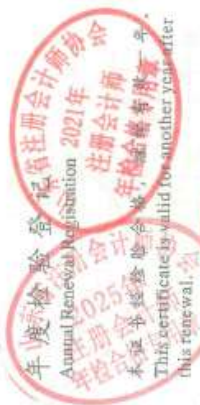 年度检验登记
Annual Renewal Registration
本证书经检验合格，继续有效一年。
This certificate is valid for another year after
this renewal.
省注册会计师协会
2021年
注册会计师
年检合格
2025年
注册会计师
年检合格